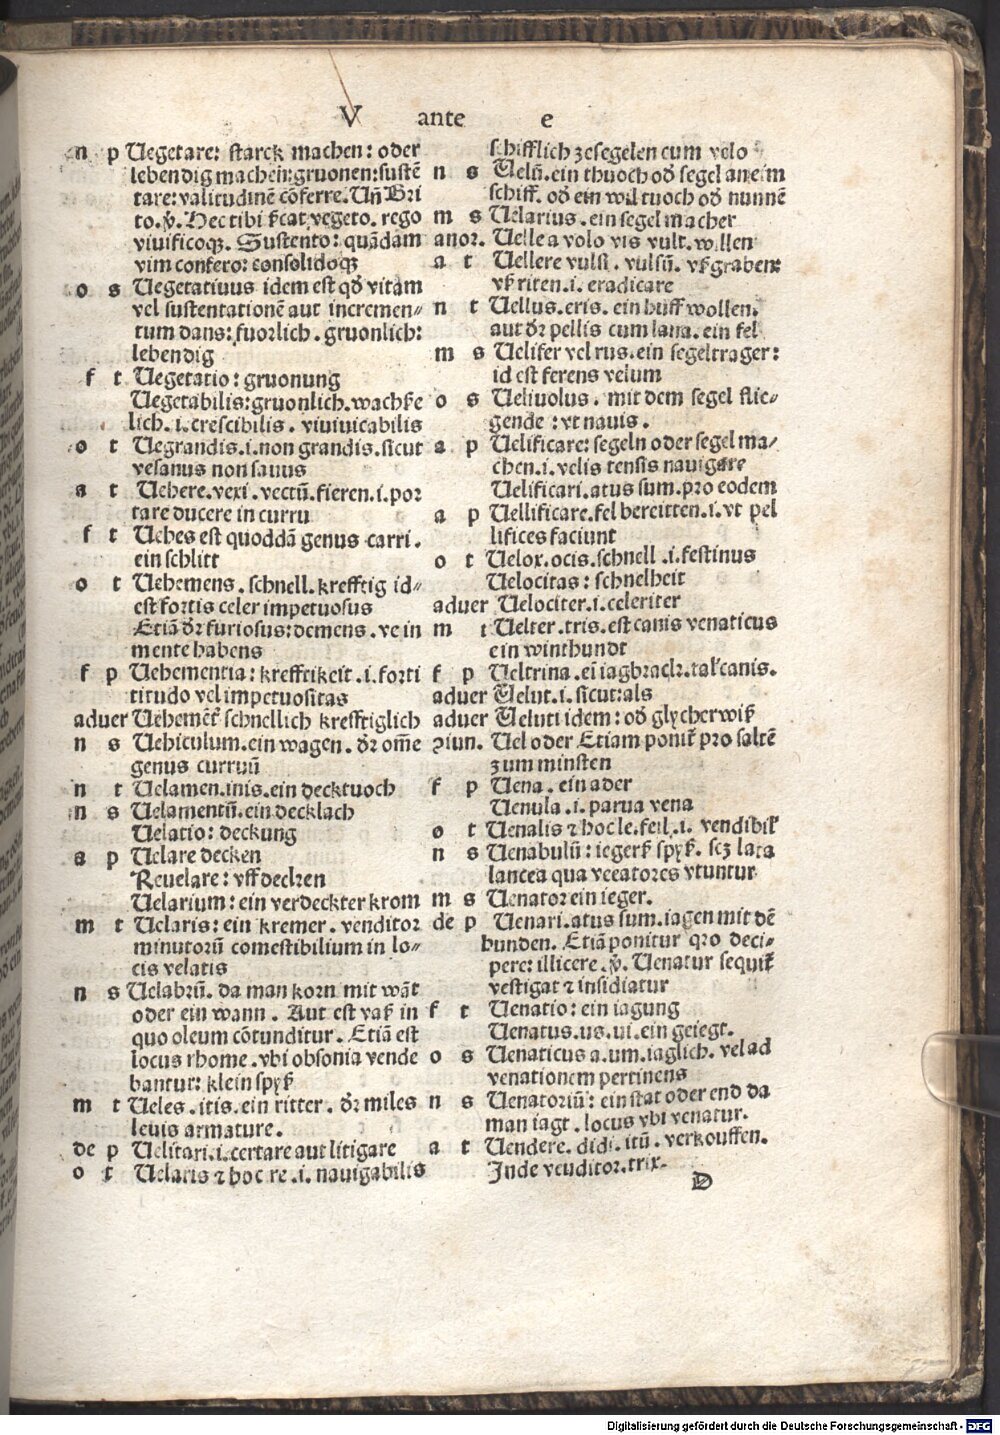 V ante e
n p Uegetare: starck machen: oder
lebendig machen: gruonen: sustē
tare: valitudinē cōferre. Uñ Bri
to. v̈. Hec tibi ꝓcat vegeto. rego
viuificoqꝫ. Sustento: quādam
vim confero: consolidoqꝫ
o s Uegetatiuus idem est qđ vitam
vel sustentationē aut incremen⸗
tum dans: fuorlich. gruonlich:
lebendig
f t Uegetatio: gruonung
Uegetabilis: gruonlich. wachße
lich. i. crescibilis. viuiuicabilis
o t Uegrandis. i. non grandis. sicut
vesanus non sanus
a t Uehere. vexi. vectū. fieren. i. por
tare ducere in curru
f t Uehes est quoddā genus carri.
ein schlitt
o t Uehemens. schnell. krefftig id⸗
est fortis celer impetuosus
Etiā dr̄ furiosus: demens. ve in
mente habens
f p Uehementia: krefftikeit. i. forti
titudo vel impetuositas
aduer Uehemēt̄ schnellich krefftiglich
n s Uehiculum. ein wagen. dr̄ om̄e
genus curruū
n t Uelamen. inis. ein decktuoch
n s Uelamentū. ein decklach
Uelatio: deckung
a p Uelare decken
Reuelare: vff decken
Uelarium: ein verdeckter krom
m t Uelaris: ein kremer. venditor
minutorū comestibilium in lo⸗
cis velatis
n s Uelabrū. da man korn mit wāt
oder ein wann. Aut est vaß in
quo oleum cōtunditur. Etiā est
locus rhome. vbi obsonia vende
bantur: klein spyß
m t Ueles. itis. ein ritter. dr̄ miles
leuis armature.
de p Uelitari. i. certare aut litigare
o t Uelaris ⁊ hoc re. i. nauigabilis
schifflich zesegelen cum velo
n s Uelū. ein thuoch od̄ segel an eim
schiff. od̄ ein wil tuoch od̄ nunnē
m s Uelarius. ein segel macher
anor. Uelle a volo vis vult. wellen
a t Uellere vulsi. vulsū. vßgraben:
vßriten. i. eradicare
n t Uellus. eris. ein huff wollen.
aut dr̄ pellis cum lana. ein fel
m s Uelifer vel rus. ein segeltrager:
id est ferens velum
o s Ueliuolus. mit dem segel flie⸗
gende: vt nauis.
a p Uelificare: segeln oder segel ma⸗
chen. i. velis tensis nauigare
Uelificari. atus sum. pro eodem
a p Uellificare. fel bereitten. i. vt pel
lifices faciunt
o t Uelox. ocis. schnell. i. festinus
Uelocitas: schnelheit
aduer Uelociter. i. celeriter
m t Uelter. tris. est canis venaticus
ein winthundt
f p Ueltrina. eī iaghrackr. tal' canis.
aduer Uelut. i. sicut: als
aduer Ueluti idem: od̄ glycherwiß
ꝯiun. Uel oder Etiam ponit̄ pro saltē
zum minsten
f p Uena. ein ader
Uenula. i. parua vena
o t Uenalis ⁊ hoc le. feil. i. vendibil'
n s Uenabulū: iegerß spyß. scꝫ lata
lancea qua veeatores vtuntur
m s Uenator ein ieger.
de p Uenari. atus sum. iagen mit dē
hunden. Etiā ponitur qro deci⸗
pere: illicere. v̈. Uenatur sequit̄
vestigat ⁊ insidiatur
f t Uenatio: ein iagung
Uenatus. us. ui. ein geiegt.
o s Uenaticus a. um. iaglich. vel ad
venationem pertinens
n s Uenatoriū: ein stat oder end da
man iagt. locus vbi venatur.
a t Uendere. didi. itū. verkouffen.
Inde venditor. trix.
D
Digitalisierung gefördert durch die Deutsche Forschungsgemeinschaft - DFG